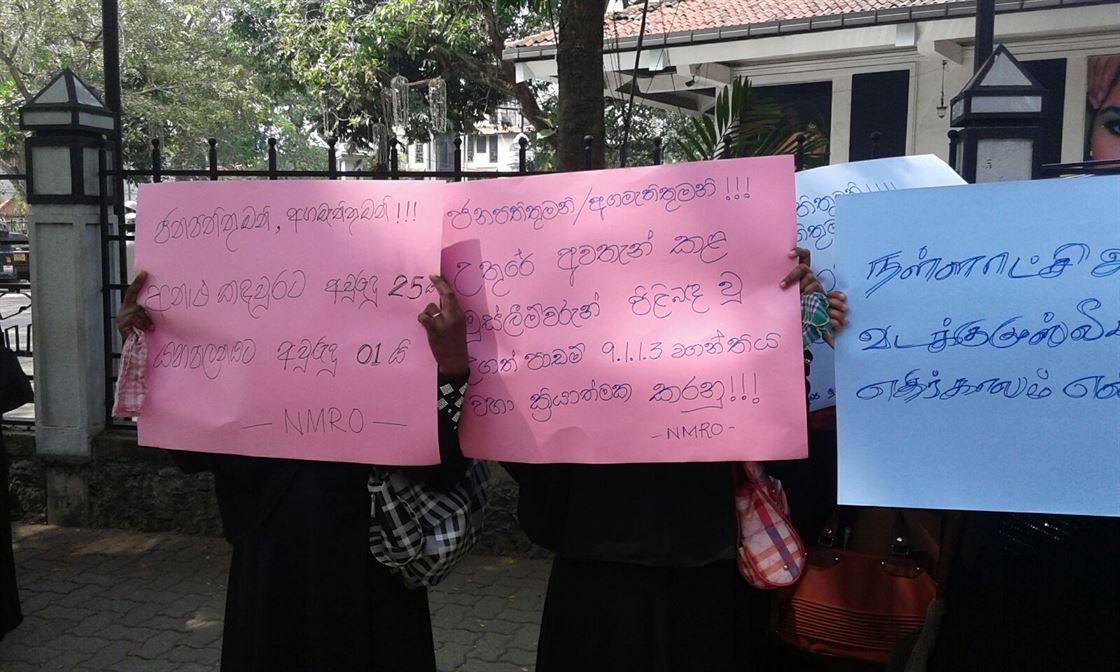 ජනපතිතුමනි, අගමැතිතුමනි !!!
අනාථ කඳවුරට අවුරුදු 25
යහපාලනයට අවුරුදු 01 යි
— NMRO —
ජනපතිතුමනි/අගමැතිතුමනි !!!
උතුරේ අවතැන් කළ
මුස්ලිම්වරුන් පිළිබඳ වූ
උගත් පාඩම් 9.1.1.3 වගන්තිය
වහා ක්‍රියාත්මක කරනු!!!
- NMRO -
நல்லாட்சி
வடக்கு முஸ்லி
எதிர்காலம்